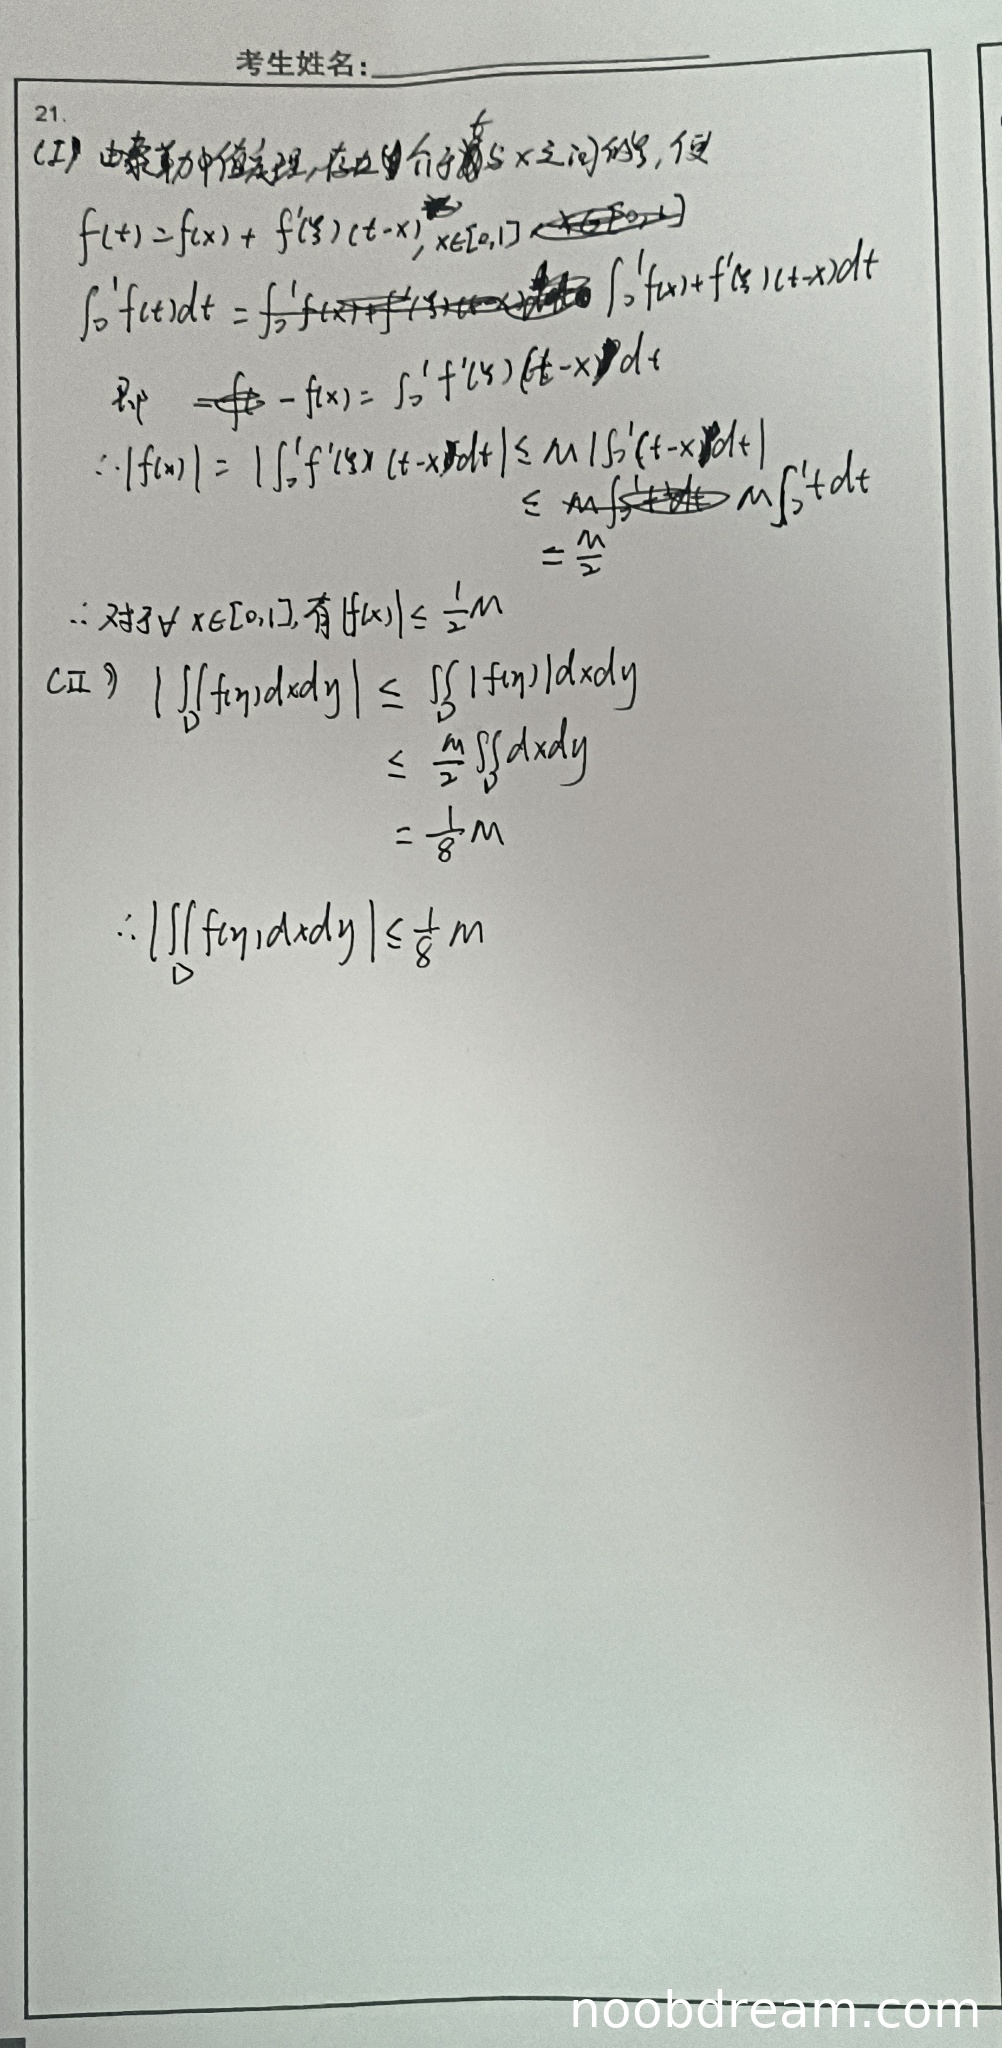 考生姓名:
21.
(I) 由泰勒中值定理,存在介于t与x之间的ξ,使
f(t)=f(x)+f'(ξ)(t-x), x∈[0,1]
∫₀¹f(t)dt = ∫₀¹f(x)+f'(ξ)(t-x)dt
即 -f(x)=∫₀¹f'(ξ)(t-x)dt
∴|f(x)| = |∫₀¹f'(ξ)(t-x)dt| ≤ M|∫₀¹(t-x)dt|
≤ M∫₀¹tdt
= M/2
∴对于∀x∈[0,1],有|f(x)|≤ 1/2 M
(II) |∬_D f(η)dxdy| ≤ ∬_D |f(η)|dxdy
≤ M/2 ∬_D dxdy
= 1/8 M
∴|∬_D f(η)dxdy|≤ 1/8 M
noobdream.com